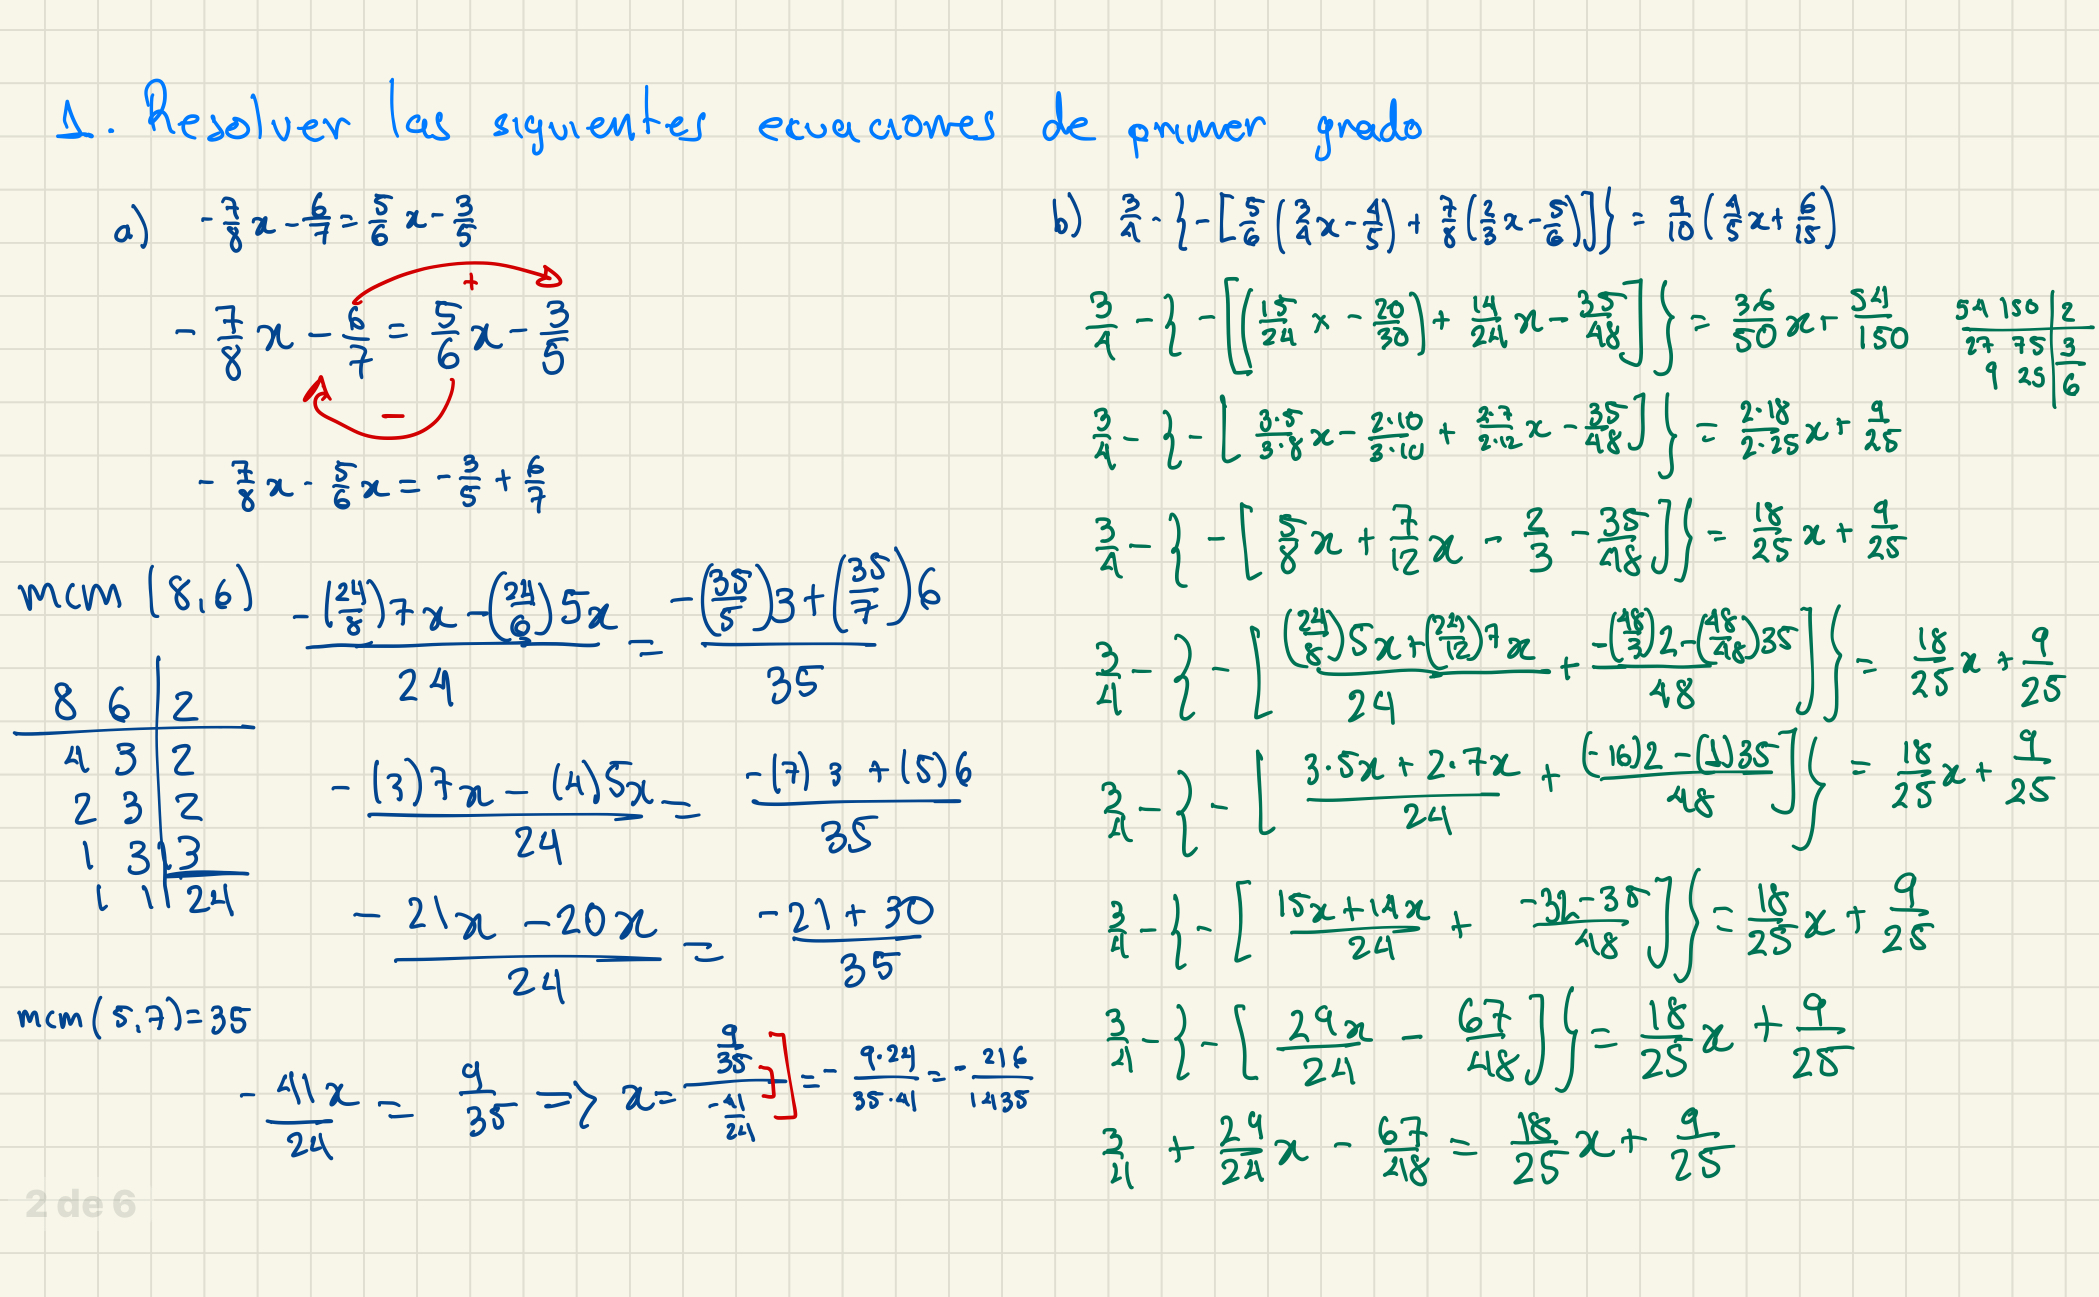 1. Resolver las siguientes ecuaciones de primer grado
a) -7/8 x - 6/7 = 5/6 x - 3/5
+
-7/8 x - 6/7 = 5/6 x - 3/5
-
-7/8 x - 5/6 x = -3/5 + 6/7
mcm (8,6)
8 6 | 2
4 3 | 2
2 3 | 2
1 3 | 3
1 1 | 24
(-(24/8)7x - (24/6)5x)/24 = (-(35/5)3 + (35/7)6)/35
(-(3)7x - (4)5x)/24 = (-(7)3 + (5)6)/35
(-21x - 20x)/24 = (-21 + 30)/35
mcm(5,7)=35
-41x/24 = 9/35 => x = (9/35)/(-41/24) = -(9·24)/(35·41) = -216/1435
b) 3/4 - {-[5/6 (3/4 x - 4/5) + 7/8 (2/3 x - 5/6)]} = 9/10 (4/5 x + 6/15)
3/4 - {-[(15/24 x - 20/30) + 14/24 x - 35/48]} = 36/50 x + 54/150
54 150 | 2
27 75 | 3
9 25 | 6
3/4 - {-[3·5/3·8 x - 2·10/3·10 + 2·7/2·12 x - 35/48]} = 2·18/2·25 x + 9/25
3/4 - {-[5/8 x + 7/12 x - 2/3 - 35/48]} = 18/25 x + 9/25
3/4 - {-[((24/8)5x + (24/12)7x)/24 + (-(48/3)2 - (48/48)35)/48]} = 18/25 x + 9/25
3/4 - {-[(3.5x + 2.7x)/24 + ((-16)2 - (1)35)/48]} = 18/25 x + 9/25
3/4 - {-[(15x + 14x)/24 + (-32 - 35)/48]} = 18/25 x + 9/25
3/4 - {-[29x/24 - 67/48]} = 18/25 x + 9/25
3/4 + 29/24 x - 67/48 = 18/25 x + 9/25
2 de 6